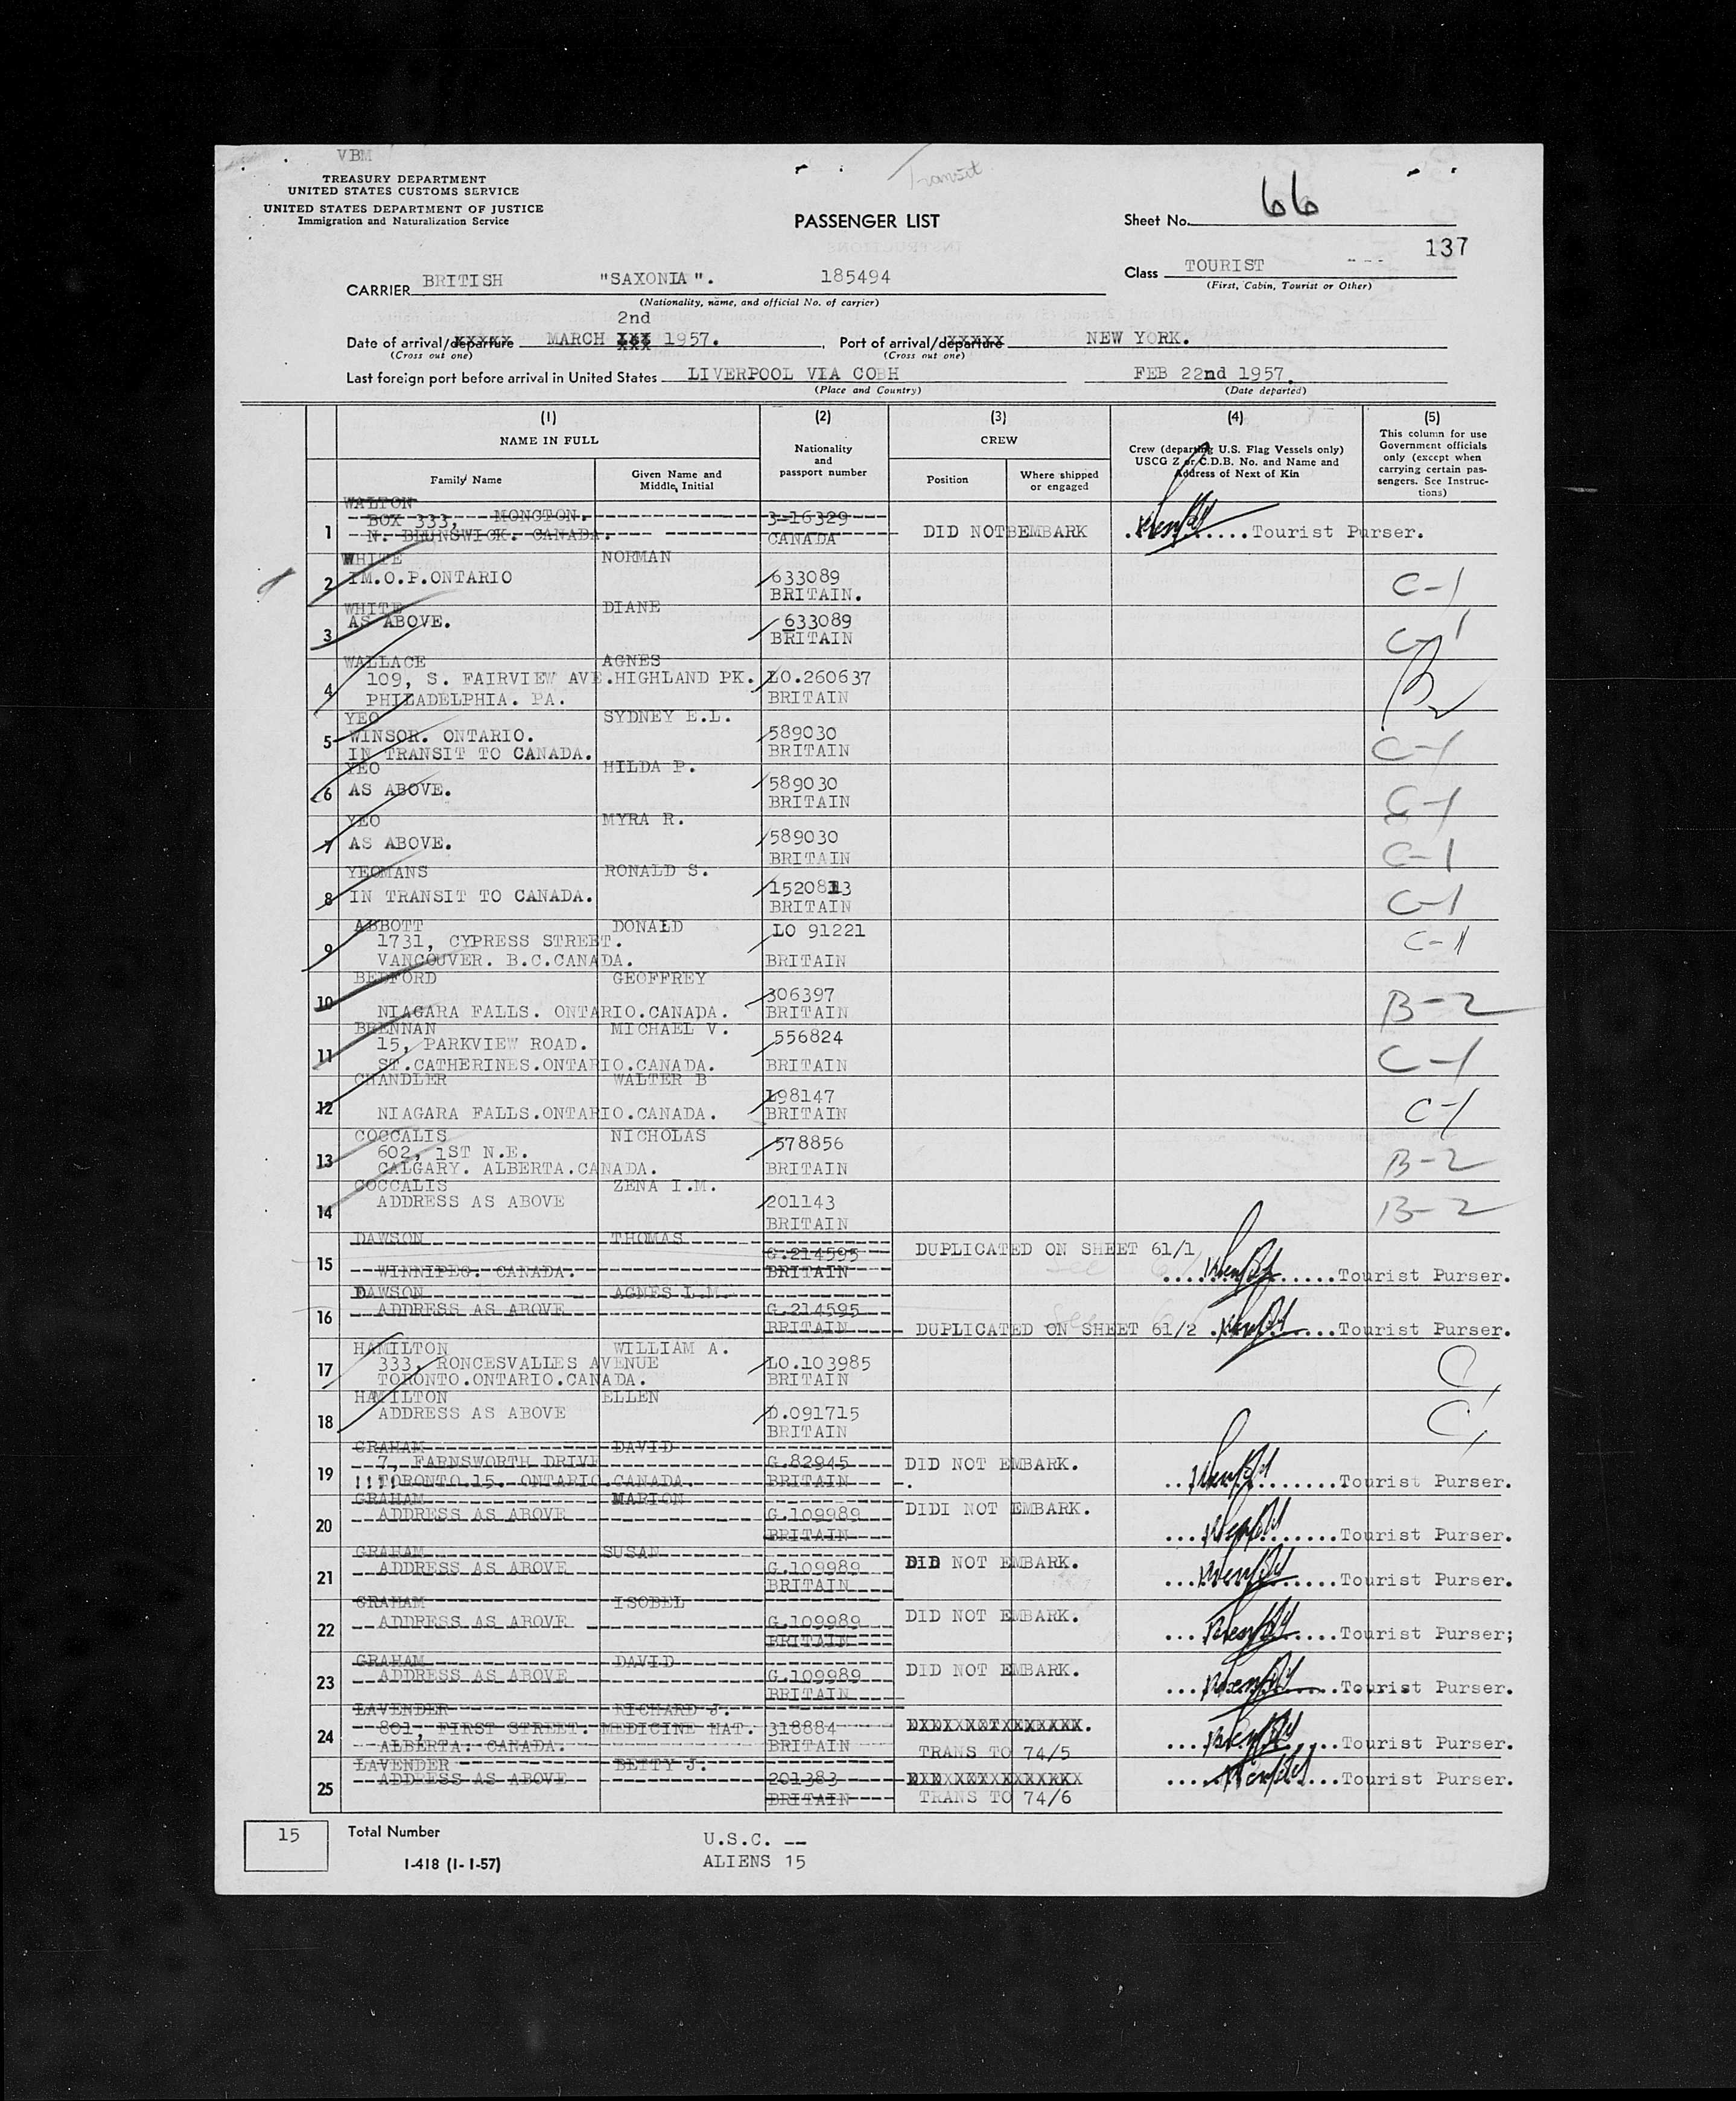 VBM
TREASURY DEPARTMENT
UNITED STATES CUSTOMS SERVICE
UNITED STATES DEPARTMENT OF JUSTICE
Immigration and Naturalization Service
Transit
PASSENGER LIST
Sheet No. 66
137
CARRIER BRITISH "SAXONIA". 185494
(Nationality, name, and official No. of carrier)
Class TOURIST
(First, Cabin, Tourist or Other)
2nd
Date of arrival/departure MARCH 1957. Port of arrival/departure NEW YORK.
(Cross out one) (Cross out one)
Last foreign port before arrival in United States LIVERPOOL VIA COBH FEB 22nd 1957.
(Place and Country) (Date departed)
(1) (2) (3) (4) (5)
NAME IN FULL
Family Name
Given Name and Middle Initial
Nationality and passport number
CREW
Position
Where shipped or engaged
Crew (departing U.S. Flag Vessels only)
USCG Z or C.D.B. No. and Name and
Address of Next of Kin
This column for use
Government officials
only (except when
carrying certain pas-
sengers. See Instruc-
tions)
WALTON
BOX 333, MONCTON. 3-16329
1 N. BRUNSWICK. CANADA. CANADA DID NOT EMBARK Tourist Purser.
WHITE NORMAN
2 IM.O.P.ONTARIO 633089 C-1
BRITAIN.
WHITE DIANE
3 AS ABOVE. 633089 C-1
BRITAIN
WALLACE AGNES
4 109, S. FAIRVIEW AVE.HIGHLAND PK. LO.260637 B2
PHILADELPHIA. PA. BRITAIN
YEO SYDNEY E.L.
5 WINSOR. ONTARIO. 589030 C-1
IN TRANSIT TO CANADA. BRITAIN
YEO HILDA P.
6 AS ABOVE. 589030 C-1
BRITAIN
YEO MYRA R.
7 AS ABOVE. 589030 C-1
BRITAIN
YEOMANS RONALD S.
8 IN TRANSIT TO CANADA. 1520813 C-1
BRITAIN
ABBOTT DONALD LO 91221
9 1731, CYPRESS STREET. C-1
VANCOUVER. B.C.CANADA. BRITAIN
BEDFORD GEOFFREY
10 306397 B-2
NIAGARA FALLS. ONTARIO.CANADA. BRITAIN
BRENNAN MICHAEL V. 556824
11 15, PARKVIEW ROAD. C-1
ST.CATHERINES.ONTARIO.CANADA. BRITAIN
CHANDLER WALTER B
12 198147 C-1
NIAGARA FALLS.ONTARIO.CANADA. BRITAIN
COCCALIS NICHOLAS 578856
13 602, 1ST N.E. B-2
CALGARY. ALBERTA.CANADA. BRITAIN
COCCALIS ZENA I.M.
14 ADDRESS AS ABOVE 201143 B-2
BRITAIN
DAWSON THOMAS G.214595 DUPLICATED ON SHEET 61/1
15 WINNIPEG. CANADA. BRITAIN Tourist Purser.
DAWSON AGNES L.M.
16 ADDRESS AS ABOVE G.214595
BRITAIN DUPLICATED ON SHEET 61/2 Tourist Purser.
HAMILTON WILLIAM A.
17 333, RONCESVALLES AVENUE LO.103985
TORONTO.ONTARIO.CANADA. BRITAIN
HAMILTON ELLEN
18 ADDRESS AS ABOVE D.091715
BRITAIN
GRAHAM DAVID
19 7, FARNSWORTH DRIVE G.82945 DID NOT EMBARK.
TORONTO 15. ONTARIO.CANADA. BRITAIN Tourist Purser.
GRAHAM MARION
20 ADDRESS AS ABOVE G.109989 DIDI NOT EMBARK.
BRITAIN Tourist Purser.
GRAHAM SUSAN
21 ADDRESS AS ABOVE G.109989 DID NOT EMBARK.
BRITAIN Tourist Purser.
GRAHAM ISOBEL
22 ADDRESS AS ABOVE G.109989 DID NOT EMBARK.
BRITAIN Tourist Purser;
GRAHAM DAVID
23 ADDRESS AS ABOVE G.109989 DID NOT EMBARK.
BRITAIN Tourist Purser.
LAVENDER RICHARD J.
24 801, FIRST STREET. MEDICINE HAT. 318884
ALBERTA. CANADA. BRITAIN TRANS TO 74/5 Tourist Purser.
LAVENDER BETTY J.
25 ADDRESS AS ABOVE 201383 Tourist Purser.
BRITAIN TRANS TO 74/6
15 Total Number
U.S.C. --
I-418 (1-1-57)
ALIENS 15